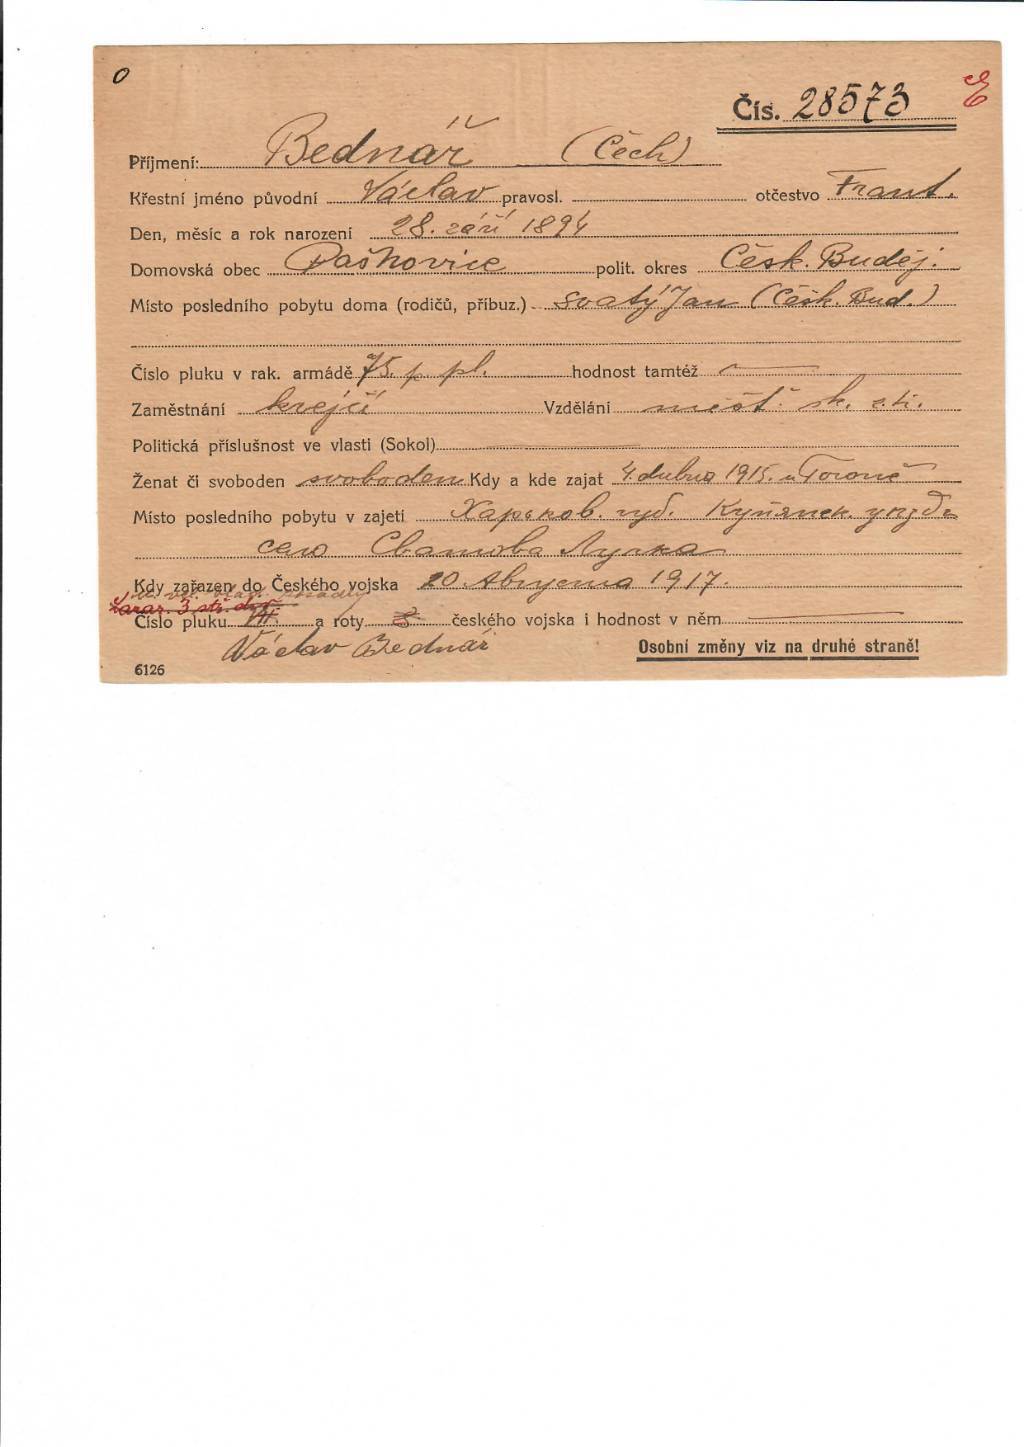 0
Čís. 28573
Příjmení: Bednář (Čech)
Křestní jméno původní Václav pravosl. otčestvo Frant.
Den, měsíc a rok narození 28. září 1894
Domovská obec Pašnovice polit. okres Česk. Buděj.
Místo posledního pobytu doma (rodičů, příbuz.) Svatý Jan (Česk. Bud.)
Číslo pluku v rak. armádě 75. p. pl. hodnost tamtéž —
Zaměstnání krejčí Vzdělání měšť. šk.
Politická příslušnost ve vlasti (Sokol)
Ženat či svoboden svoboden Kdy a kde zajat 4. dubna 1915. u
Místo posledního pobytu v zajetí Харьков. губ. Купянск. уезд
село Сватова Лучка
Kdy zařazen do Českého vojska 20 Августа 1917.
Zařaz. 3 stř. div.
Číslo pluku VII a roty 8 českého vojska i hodnost v něm —
Václav Bednář
Osobní změny viz na druhé straně!
6126